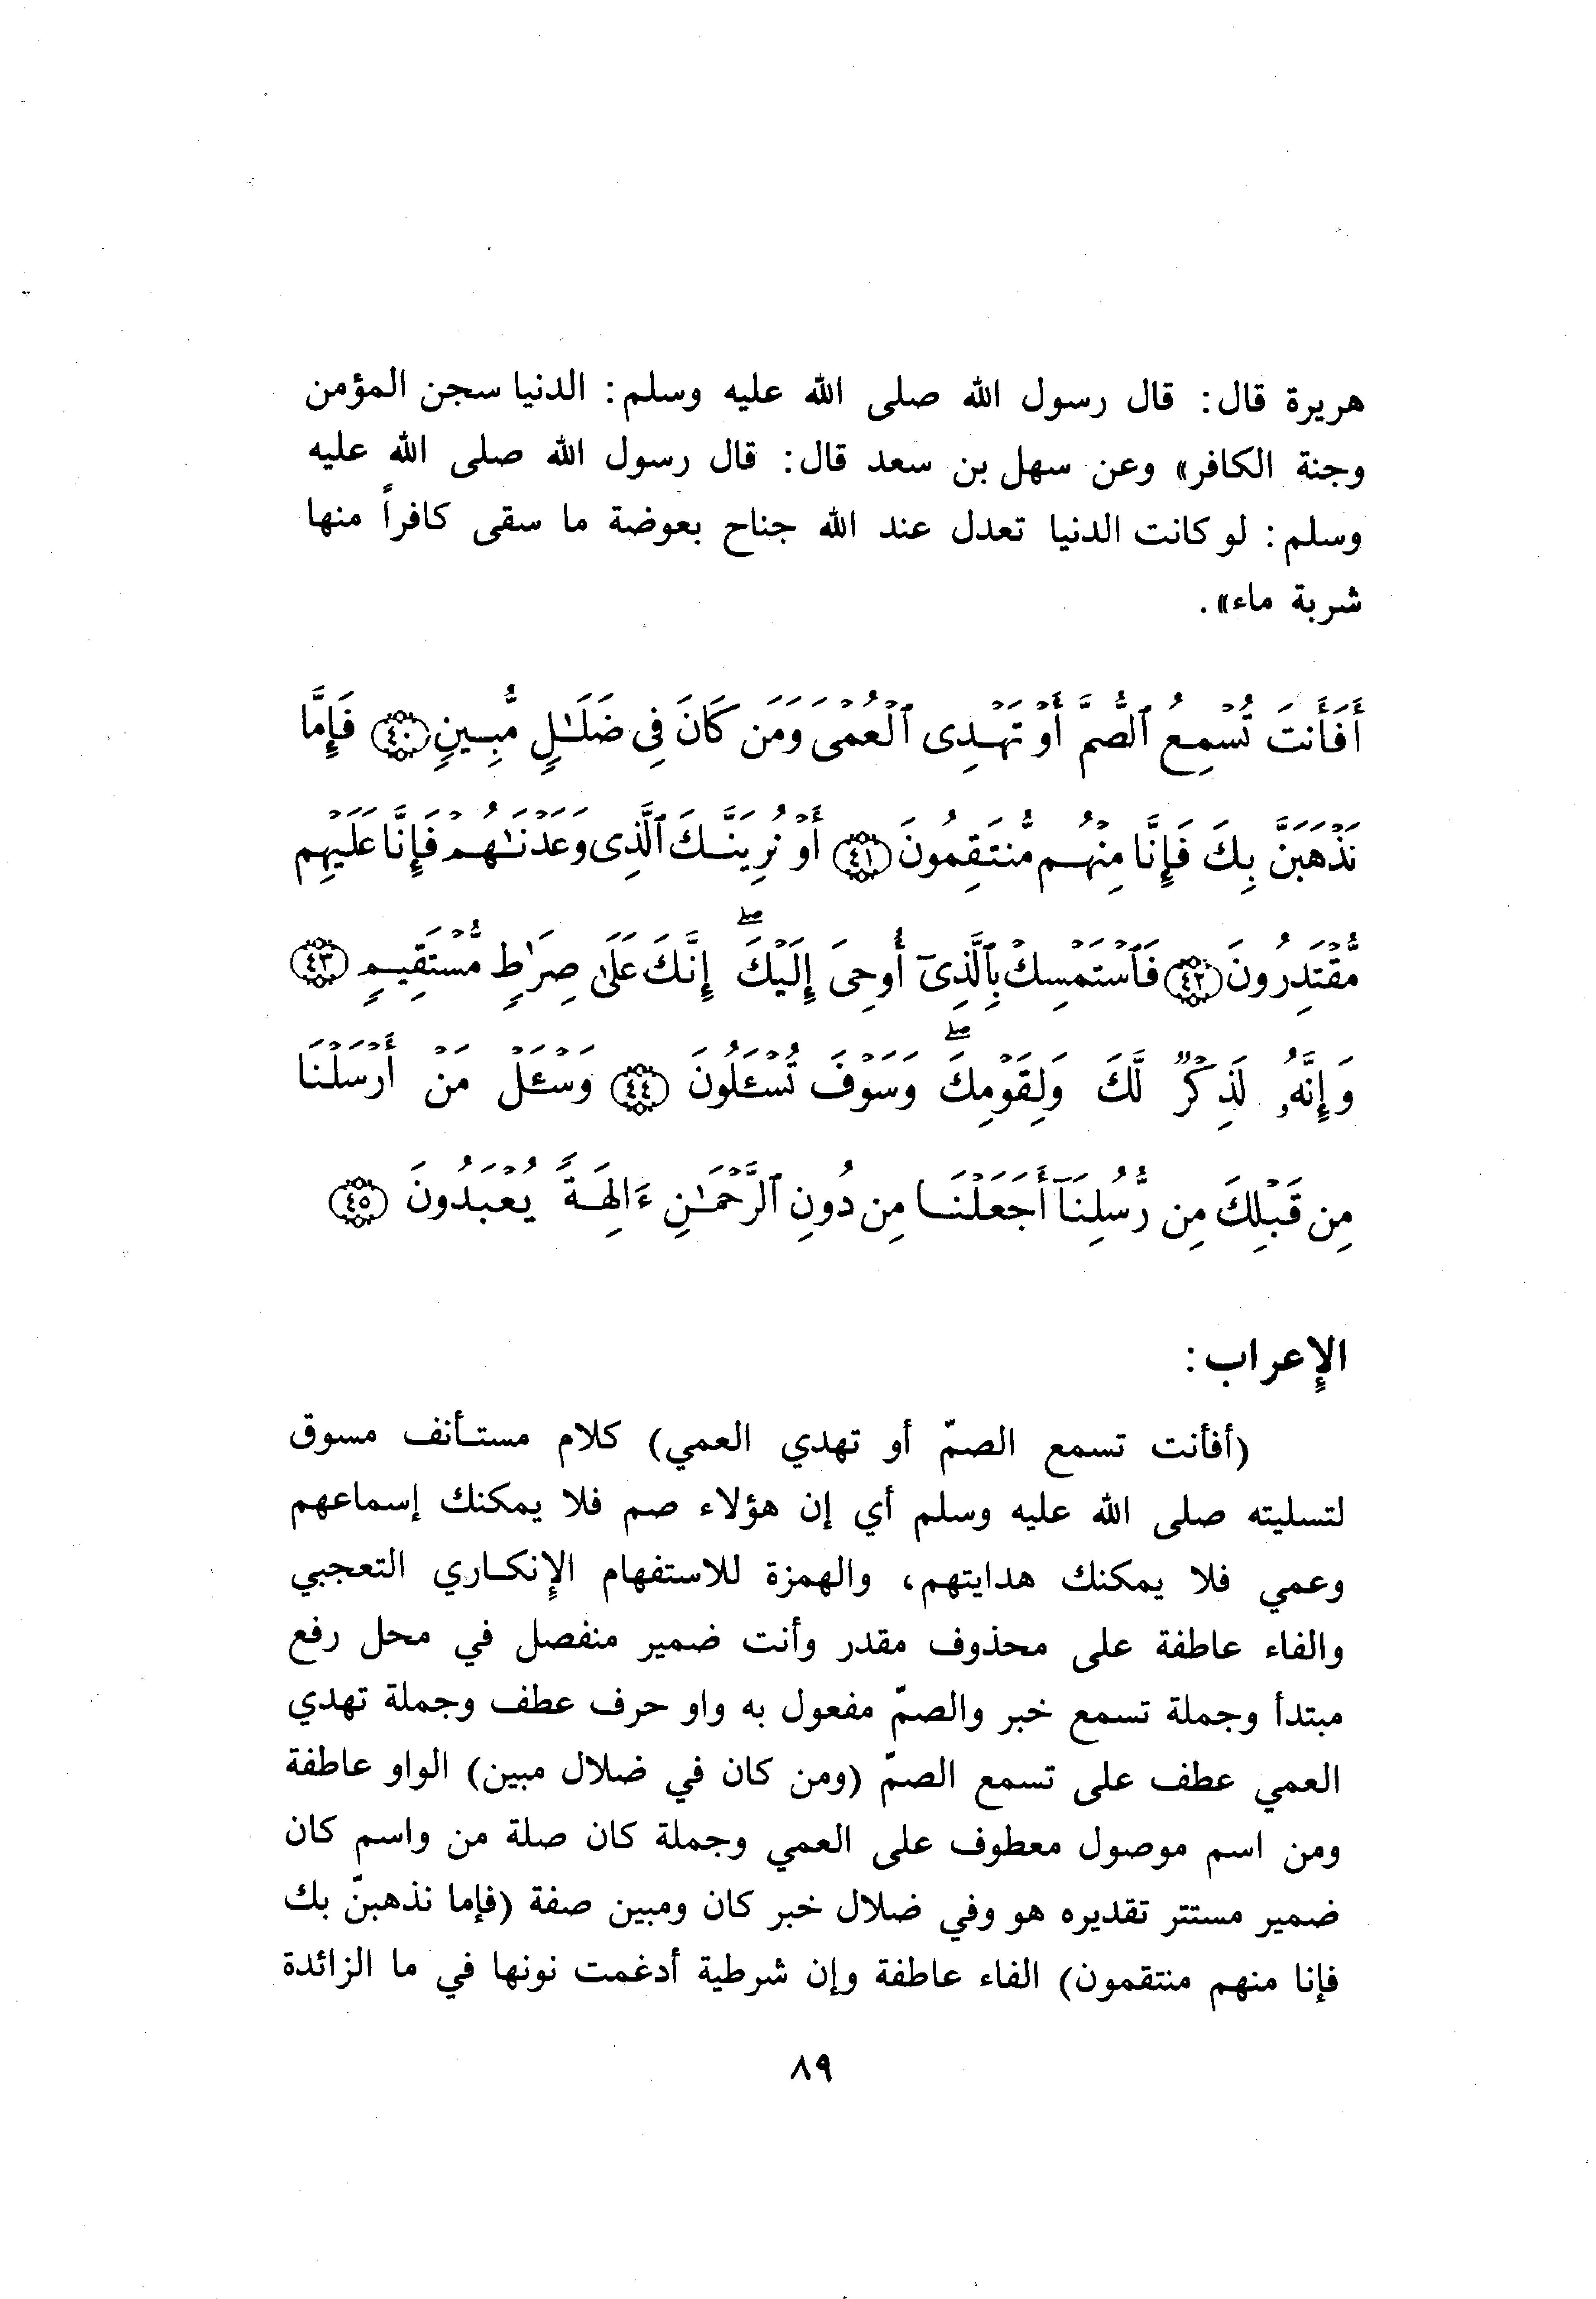 هريرة قال: قال رسول الله صلى الله عليه وسلم: الدنيا سجن المؤمن
وجنة الكافر» وعن سهل بن سعد قال: قال رسول الله صلى الله عليه
وسلم: لو كانت الدنيا تعدل عند الله جناح بعوضة ما سقى كافراً منها
شربة ماء».
أَفَأَنتَ تُسْمِعُ ٱلصُّمَّ أَوْ تَهْدِى ٱلْعُمْىَ وَمَن كَانَ فِى ضَلَـٰلٍ مُّبِينٍ ﴿٤٠﴾ فَإِمَّا
نَذْهَبَنَّ بِكَ فَإِنَّا مِنْهُم مُّنتَقِمُونَ ﴿٤١﴾ أَوْ نُرِيَنَّكَ ٱلَّذِى وَعَدْنَـٰهُمْ فَإِنَّا عَلَيْهِم
مُّقْتَدِرُونَ ﴿٤٢﴾ فَٱسْتَمْسِكْ بِٱلَّذِىٓ أُوحِىَ إِلَيْكَ ۖ إِنَّكَ عَلَىٰ صِرَٰطٍ مُّسْتَقِيمٍ ﴿٤٣﴾
وَإِنَّهُۥ لَذِكْرٌ لَّكَ وَلِقَوْمِكَ ۖ وَسَوْفَ تُسْـَٔلُونَ ﴿٤٤﴾ وَسْـَٔلْ مَنْ أَرْسَلْنَا
مِن قَبْلِكَ مِن رُّسُلِنَآ أَجَعَلْنَا مِن دُونِ ٱلرَّحْمَـٰنِ ءَالِهَةً يُعْبَدُونَ ﴿٤٥﴾
الإعراب:
(أفأنت تسمع الصمّ أو تهدي العمي) كلام مستأنف مسوق
لتسليته صلى الله عليه وسلم أي إن هؤلاء صم فلا يمكنك إسماعهم
وعمي فلا يمكنك هدايتهم، والهمزة للاستفهام الإنكاري التعجبي
والفاء عاطفة على محذوف مقدر وأنت ضمير منفصل في محل رفع
مبتدأ وجملة تسمع خبر والصمّ مفعول به واو حرف عطف وجملة تهدي
العمي عطف على تسمع الصمّ (ومن كان في ضلال مبين) الواو عاطفة
ومن اسم موصول معطوف على العمي وجملة كان صلة من واسم كان
ضمير مستتر تقديره هو وفي ضلال خبر كان ومبين صفة (فإما نذهبنّ بك
فإنا منهم منتقمون) الفاء عاطفة وإن شرطية أدغمت نونها في ما الزائدة
٨٩